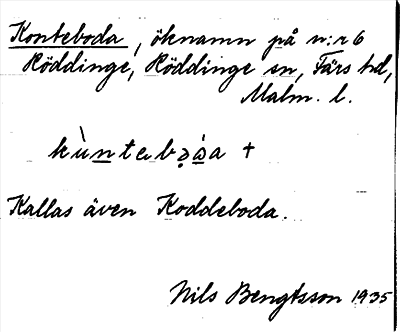 Konteboda, öknamn på n:r 6
Röddinge, Röddinge sn, Färs hd,
Malm. l.
kùntebǝáa +
Kallas även Koddeboda.
Nils Bengtsson 1935